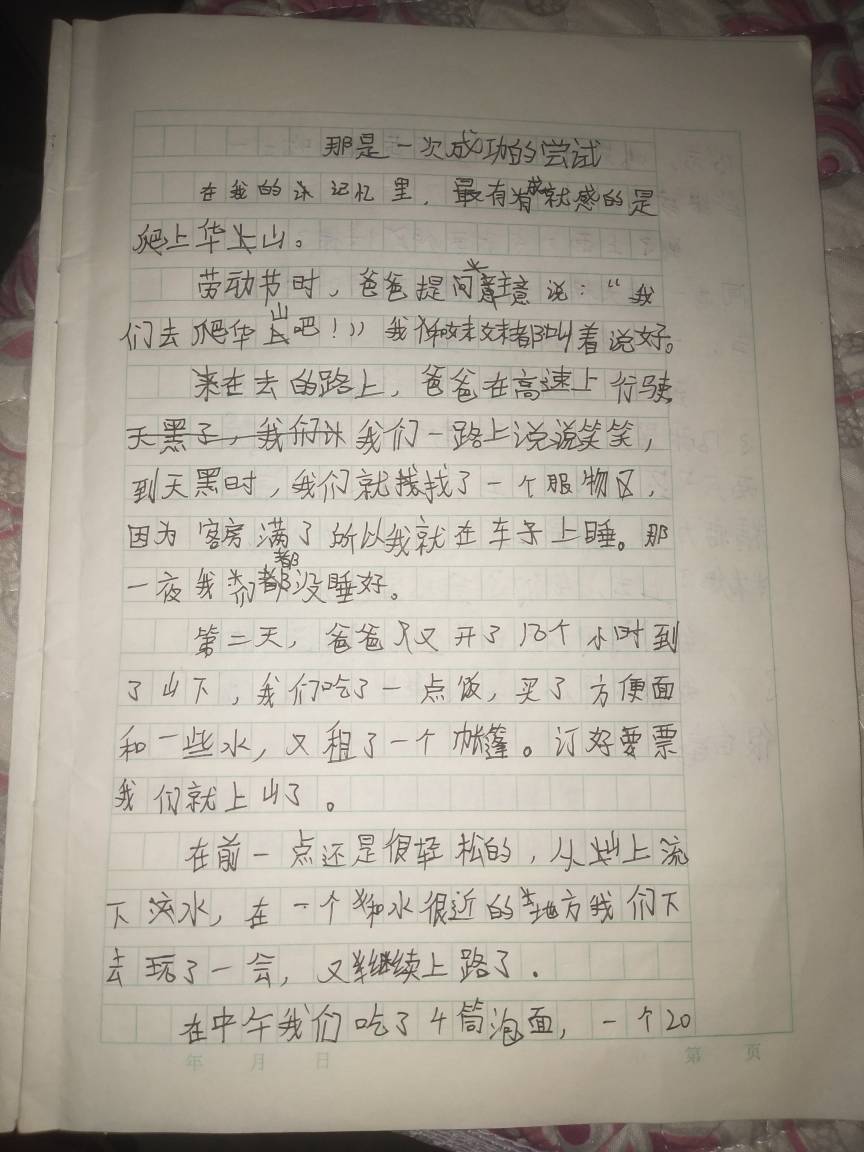 那是一次成功的尝试
在我的记忆里，最有成就感的是
爬上华山。
劳动节时，爸爸提问意说：“我
们去爬华山吧！”我和妹妹都叫着说好。
在去的路上，爸爸在高速上行驶，
天黑了，我们 我们一路上说说笑笑，
到天黑时，我们就找了一个服物区，
因为客房满了所以我就在车子上睡。那
一夜我们都没睡好。
第二天，爸爸又开了13个小时到
了山下，我们吃了一点饭，买了方便面
和一些水，又租了一个帐篷。订好票
我们就上山了。
在前一点还是很轻松的，从山上流
下流水，在一个和水很近的地方我们下
去玩了一会，又继续上路了．
在中午我们吃了4筒泡面，一个20
年 月 日 第 页